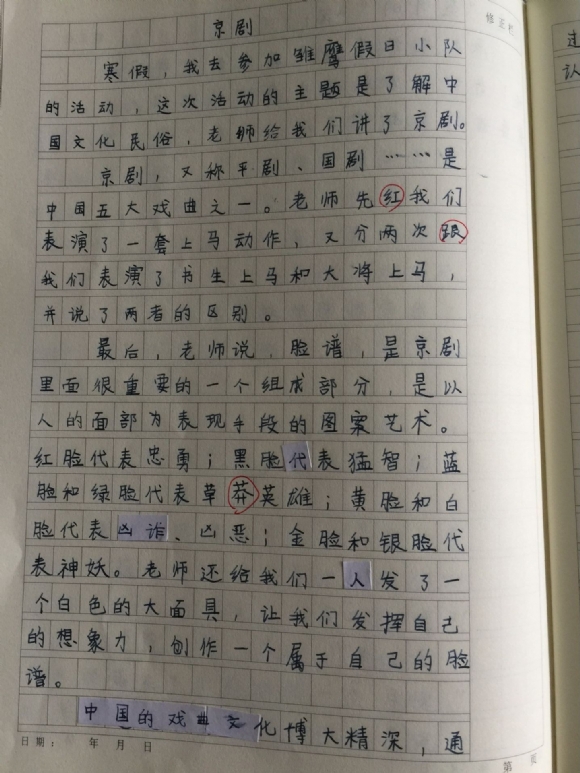 京剧
修正栏
寒假，我去参加雏鹰假日小队
的活动，这次活动的主题是了解中
国文化民俗，老师给我们讲了京剧。
京剧，又称平剧、国剧……是
中国五大戏曲之一。老师先红我们
表演了一套上马动作，又分两次跟
我们表演了书生上马和大将上马，
并说了两者的区别。
最后，老师说，脸谱，是京剧
里面很重要的一个组成部分，是以
人的面部为表现手段的图案艺术。
红脸代表忠勇；黑脸代表猛智；蓝
脸和绿脸代表草莽英雄；黄脸和白
脸代表凶诈、凶恶；金脸和银脸代
表神妖。老师还给我们一人发了一
个白色的大面具，让我们发挥自己
的想象力，创作一个属于自己的脸
谱。
中国的戏曲文化博大精深，通
日期： 年 月 日
第 页
过
认